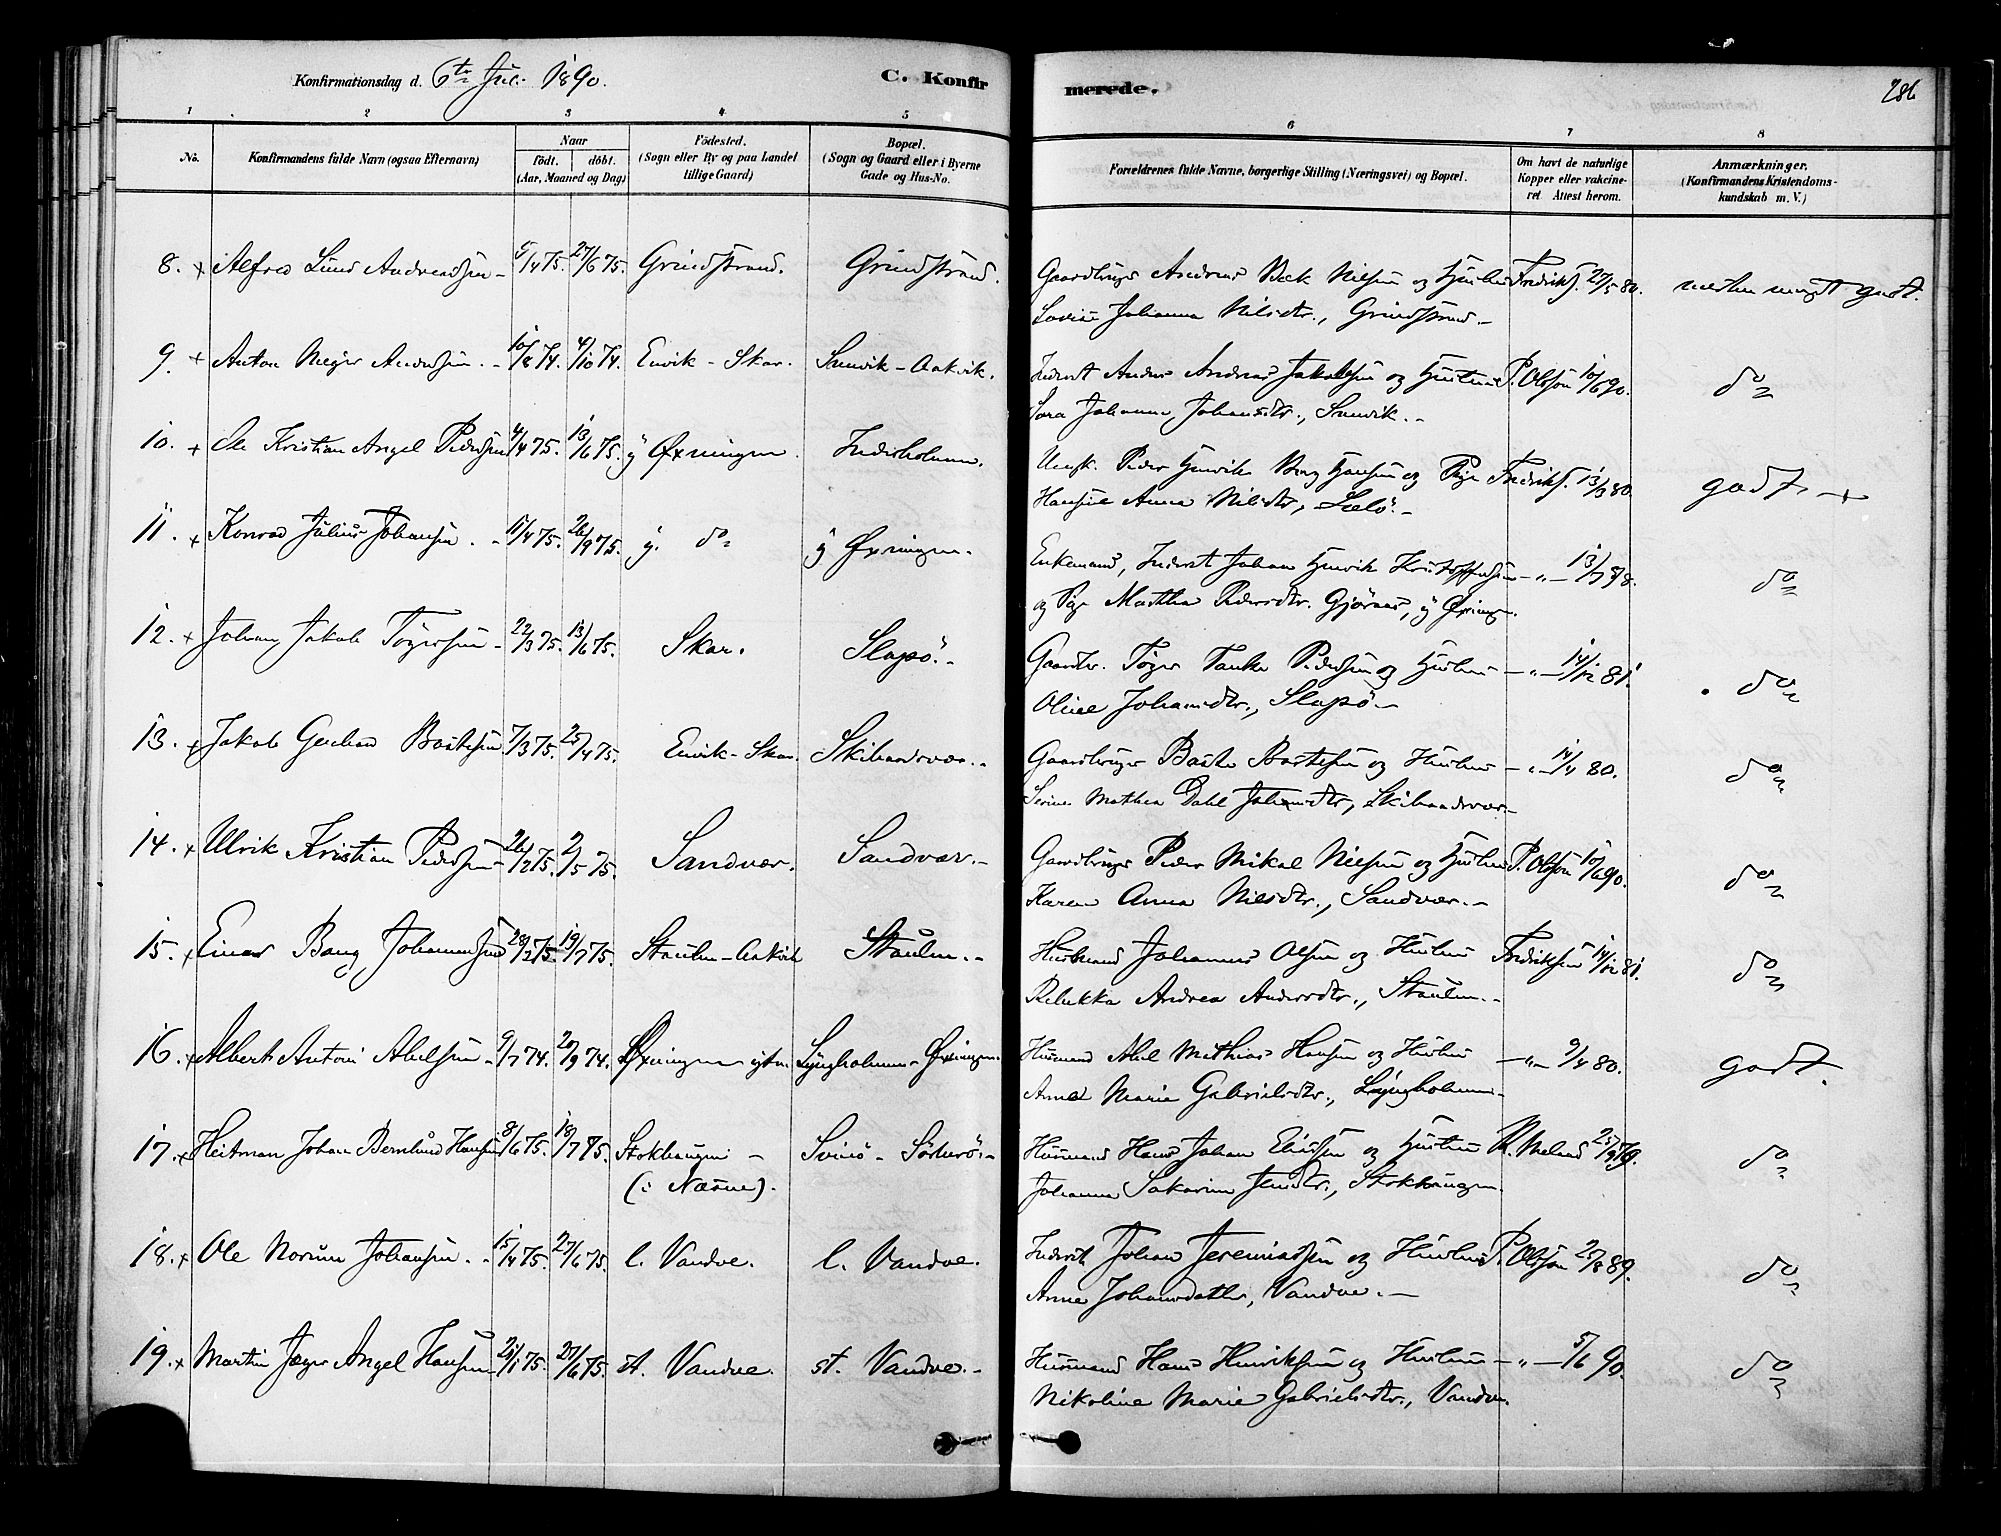 Konfirmationsdag d. 6te Juli 1890.
C. Konfirmerede.
286
1 2 3 4 5 6 7 8
No.
Konfirmandens fulde Navn (ogsaa Efternavn)
Naar
födt. döbt.
(Aar, Maaned og Dag)
Födested.
(Sogn eller By og paa Landet
tillige Gaard)
Bopæl.
(Sogn og Gaard eller i Byerne
Gade og Hus-No.
Forældrenes fulde Navne, borgerlige Stilling (Næringsvei) og Bopæl.
Om havt de naturlige
Kopper eller vakcine-
ret. Attest herom.
Anmærkninger.
(Konfirmandens Kristendoms-
kundskab m. V.)
8. x Alfred Lund Andreassen - 5/4 75. 27/6 75. Grindstrand. Grindstrand. Gaardbruger Andreas Bek Nielsen og Hustru Fredriks. 27/5 80. næsten meget godt.
Lovise Johanna Nilsdtr., Grindstrand.-
9. x Anton Meyer Andersen.- 10/8 74. 4/10 74. Envik-Skar. Sunvik-Aakvik. Inderst Anders Andreas Jakobsen og Hustru P. Olsen 10/6 90. do
Sara Johanna Johansdtr., Sunvik.-
10. x Ole Kristian Angel Pedersen 4/4 75. 13/6 75. y Øxningen. Inderholmen. Ungk. Peder Henrik Berg Hansen og Pige Fredriks. 13/3 80. godt. -x
Hansine Anna Nilsdtr, Lælö.-
11. x Konrad Julius Johansen.- 11/4 75. 26/9 75. y. do y Øxningen. Enkemand, Inderst Johan Henrik Kristoffersen -"- 13/7 78. do
og Pige Marthha Pedersdtr. Gjørnes, y Øxningen.
12. x Johan Jakob Tögersen - 22/3 75. 13/6 75. Skar. Slapö.- Gaardbr. Töger Tanke Pedersen og Hustru -"- 14/12 81. do
Oline Johansdtr., Slapö-
13. x Jakob Gerhard Bastesen 7/3 75. 25/4 75. Envik-Skar. Skibaadsvær.- Gaardbruger Baste Bastesen og Hustru -"- 14/4 80. do
Serine Mathea Dahl Johansdtr, Skibaadsvær-
14. x Ulrik Kristian Pedersen 26/2 75. 2/5 75. Sandvær. Sandvær.- Gaardbruger Peder Mikal Nielsen og Hustru P. Olsen 10/6 90. do
Karen Anna Nilsdtr., Sandvær.-
15. x Einar Bang Johannessen 28/2 75. 19/7 75. Staulen-Aakvik Staulen.- Husmand Johannes Olsen og Hustru Fredriksen 14/12 81. do
Rebekka Andrea Andersdtr., Staulen.-
16. x Albert Antoni Abelsen - 9/7 74. 20/9 74. Øxningen ytre. Lyngholmen-Øxningen. Husmand Abel Mathias Hansen og Hustru -"- 9/4 80. godt.
Anna Marie Gabrielsdtr., Lyngholmen.
17. x Heitman Johan Bernlund Hansen 8/6 75. 18/7 75. Stokhaugen - Svinö-Söderö.- Husmand Hans Johan Eliassen og Hustru K. Meland 25/9 79. do
(i Næsne). Johanna Sakarina Jensdtr., Stokhaugen
18. x Ole Norum Johansen.- 15/4 75. 27/6 75. l. Vandve. l. Vandve. Inderst Johan Jeremiassen og Hustru P. Olsen 25/8 89. do
Anne Johansdatter, Vandve.-
19. x Martin Jæger Angel Hansen 21/1 75. 27/6 75. st. Vandve. st. Vandve.- Husmand Hans Henriksen og Hustru -"- 5/6 90. do
Nikoline Marie Gabrielsdtr., Vandve.